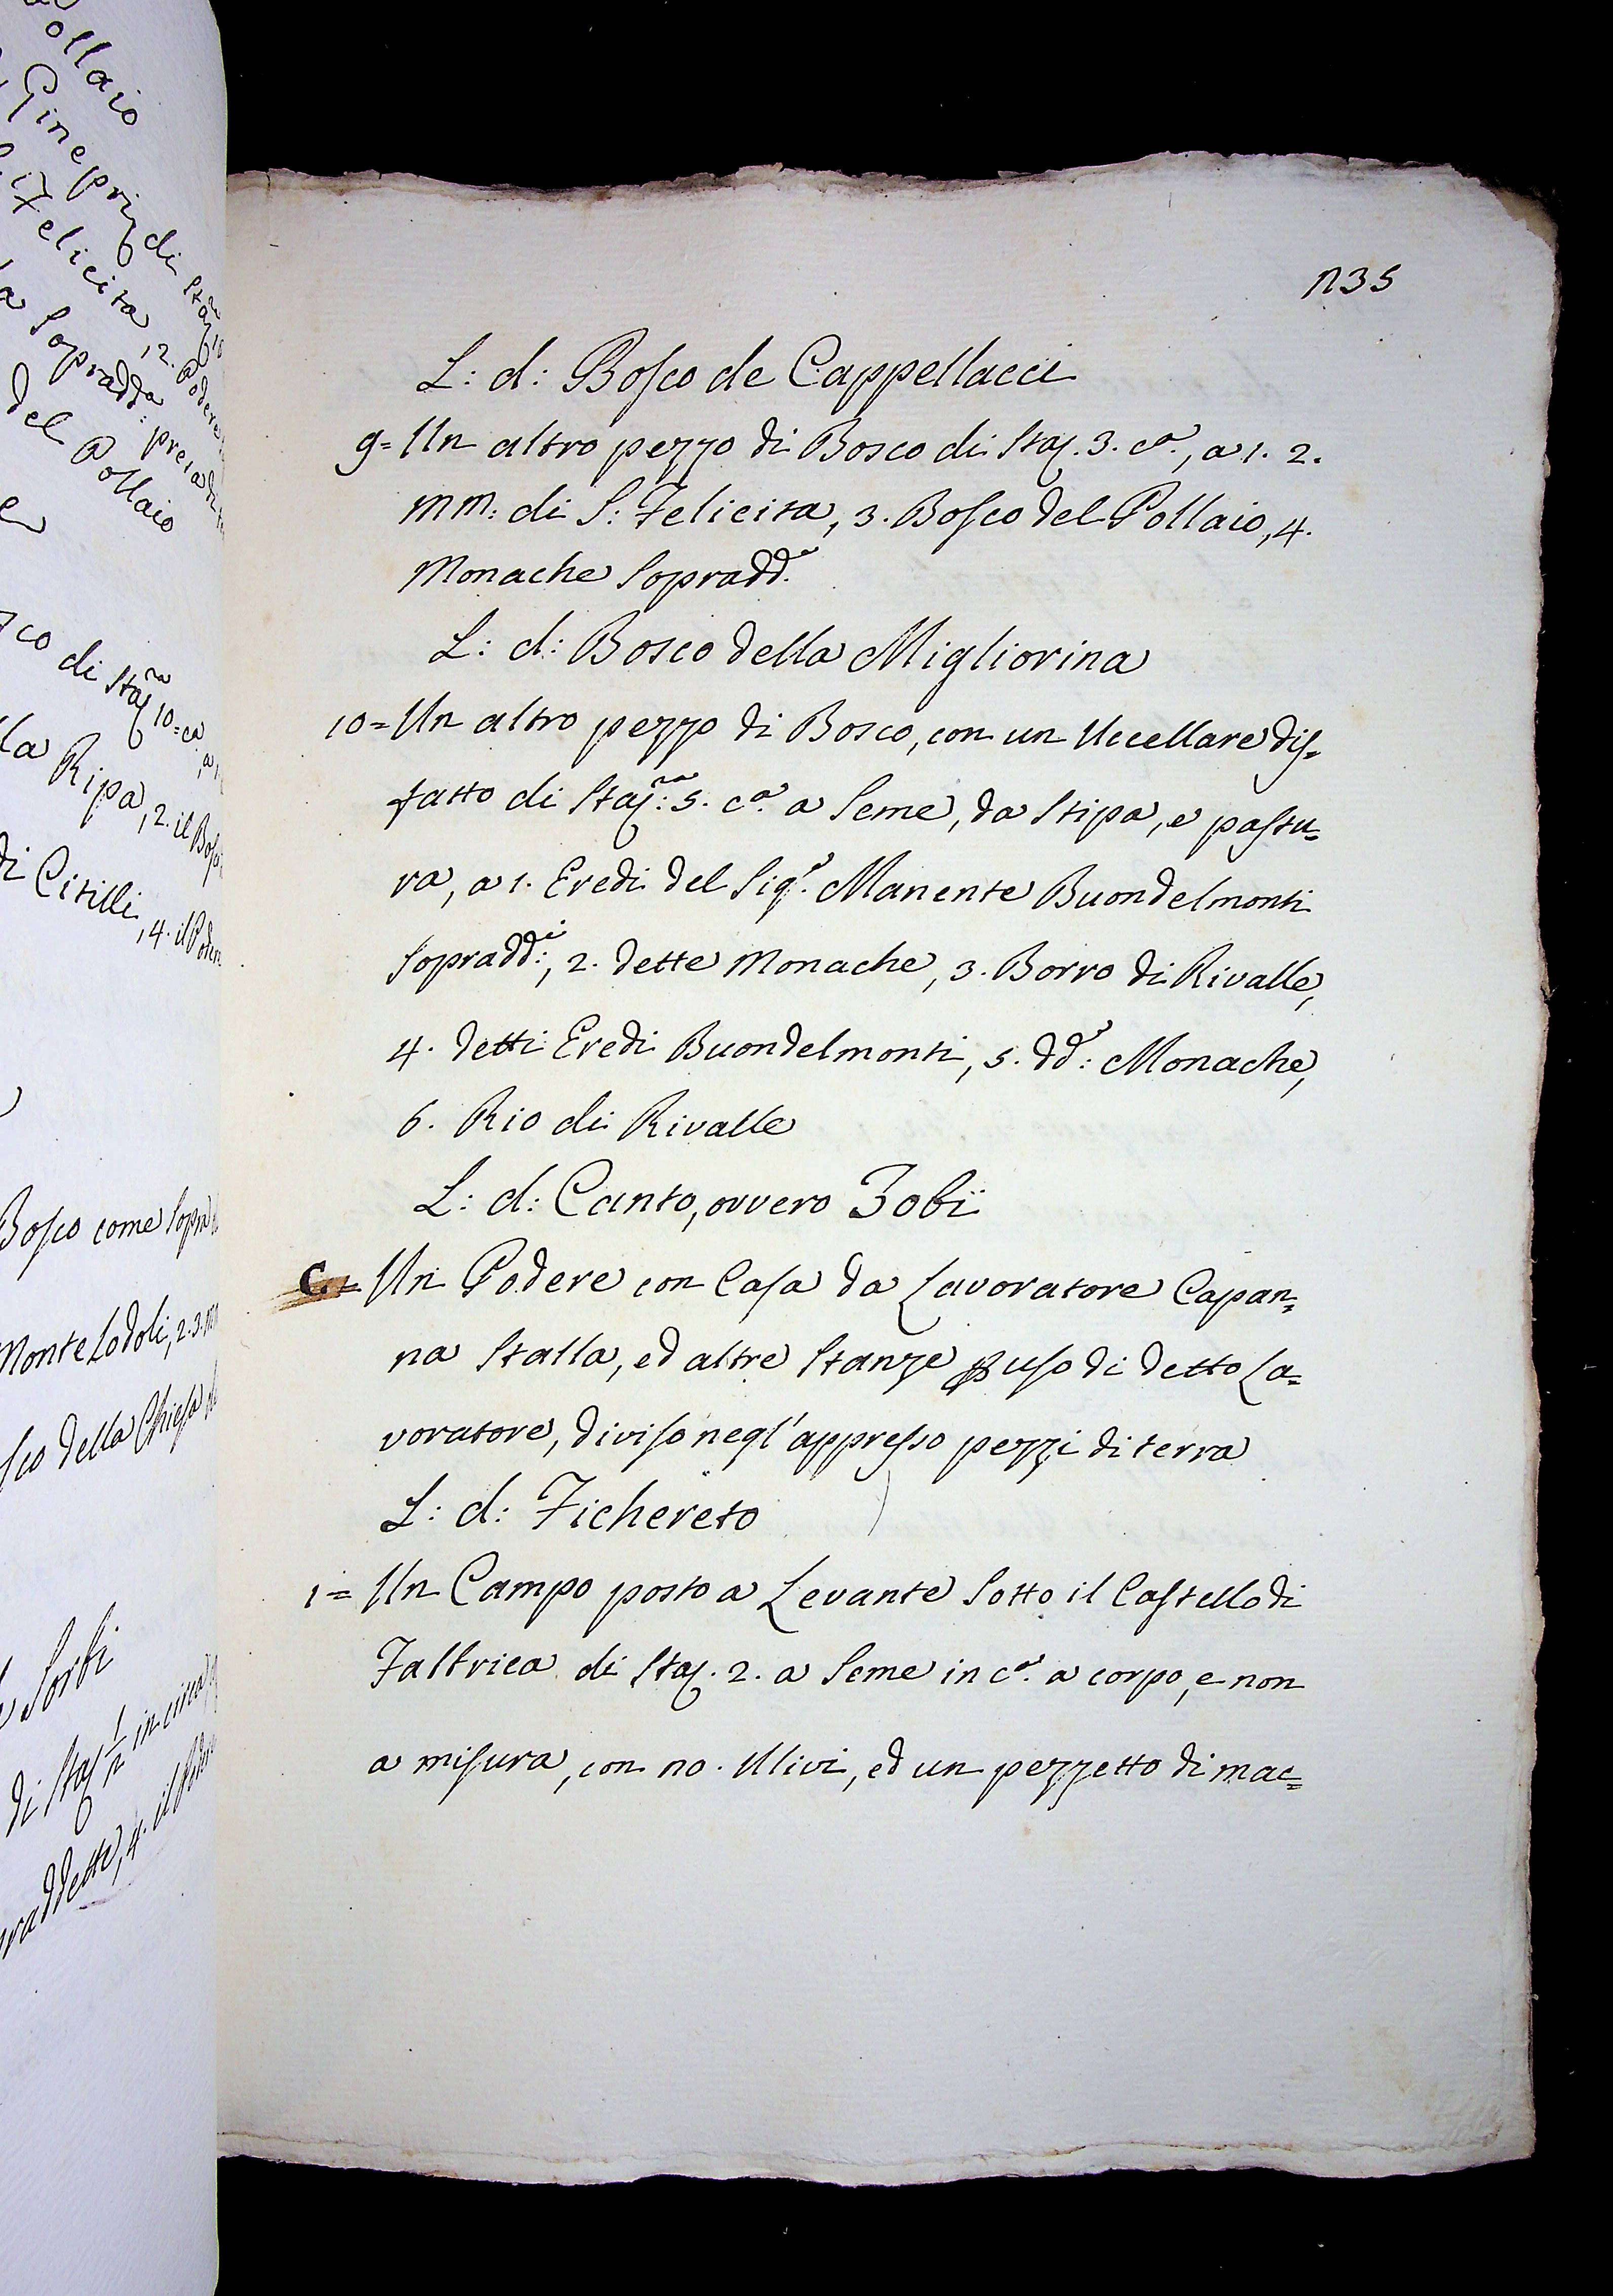 1235
L: d: Bosco de Cappellacci
9= Un altro pezzo di Bosco di Staj. 3. cᵃ., a 1. 2.
MM: di S: Felicita, 3. Bosco del Pollaio, 4.
Monache Sopradd.ᵉ
L: d: Bosco della Migliorina
10= Un altro pezzo di Bosco, con un Uccellare dis=
fatto di Staj:ʳᵃ 5. cᵃ. a Seme, da Stipa, e pastu=
ra, a 1. Eredi del Sig.ʳ Manente Buondelmonti
Sopradd:ⁱ, 2. dette Monache, 3. Borro di Rivalle,
4. detti Eredi Buondelmonti, 5. dd:ᵉ Monache,
6. Rio di Rivalle
L: d: Canto, ovvero Zobi
C.= Un Podere con Casa da Lavoratore Capan=
na Stalla, ed altre Stanze ꝑ uso di detto La=
voratore, diviso negl'appresso pezzi di terra
L: d: Fichereto
1= Un Campo posto a Levante Sotto il Castello di
Faltrica di Staj. 2. a Seme in cᵃ. a corpo, e non
a misura, con no. Ulivi, ed un pezzetto di mac=
ollaio
Ginepri di Staj
Felicita, 2. Podere
a Sopradd:ᵃ presa di
del Pollaio
sco di Staj.ʳᵃ 10= ca, a 1
la Ripa, 2. il Bosc
di Citilli, 4. il Poder
Bosco come Sopra
Monte Lodoli, 2. 3. MM
sco della Chiesa
Sorbi
di Staj 1/2 in circa
raddette, 4. il Pode